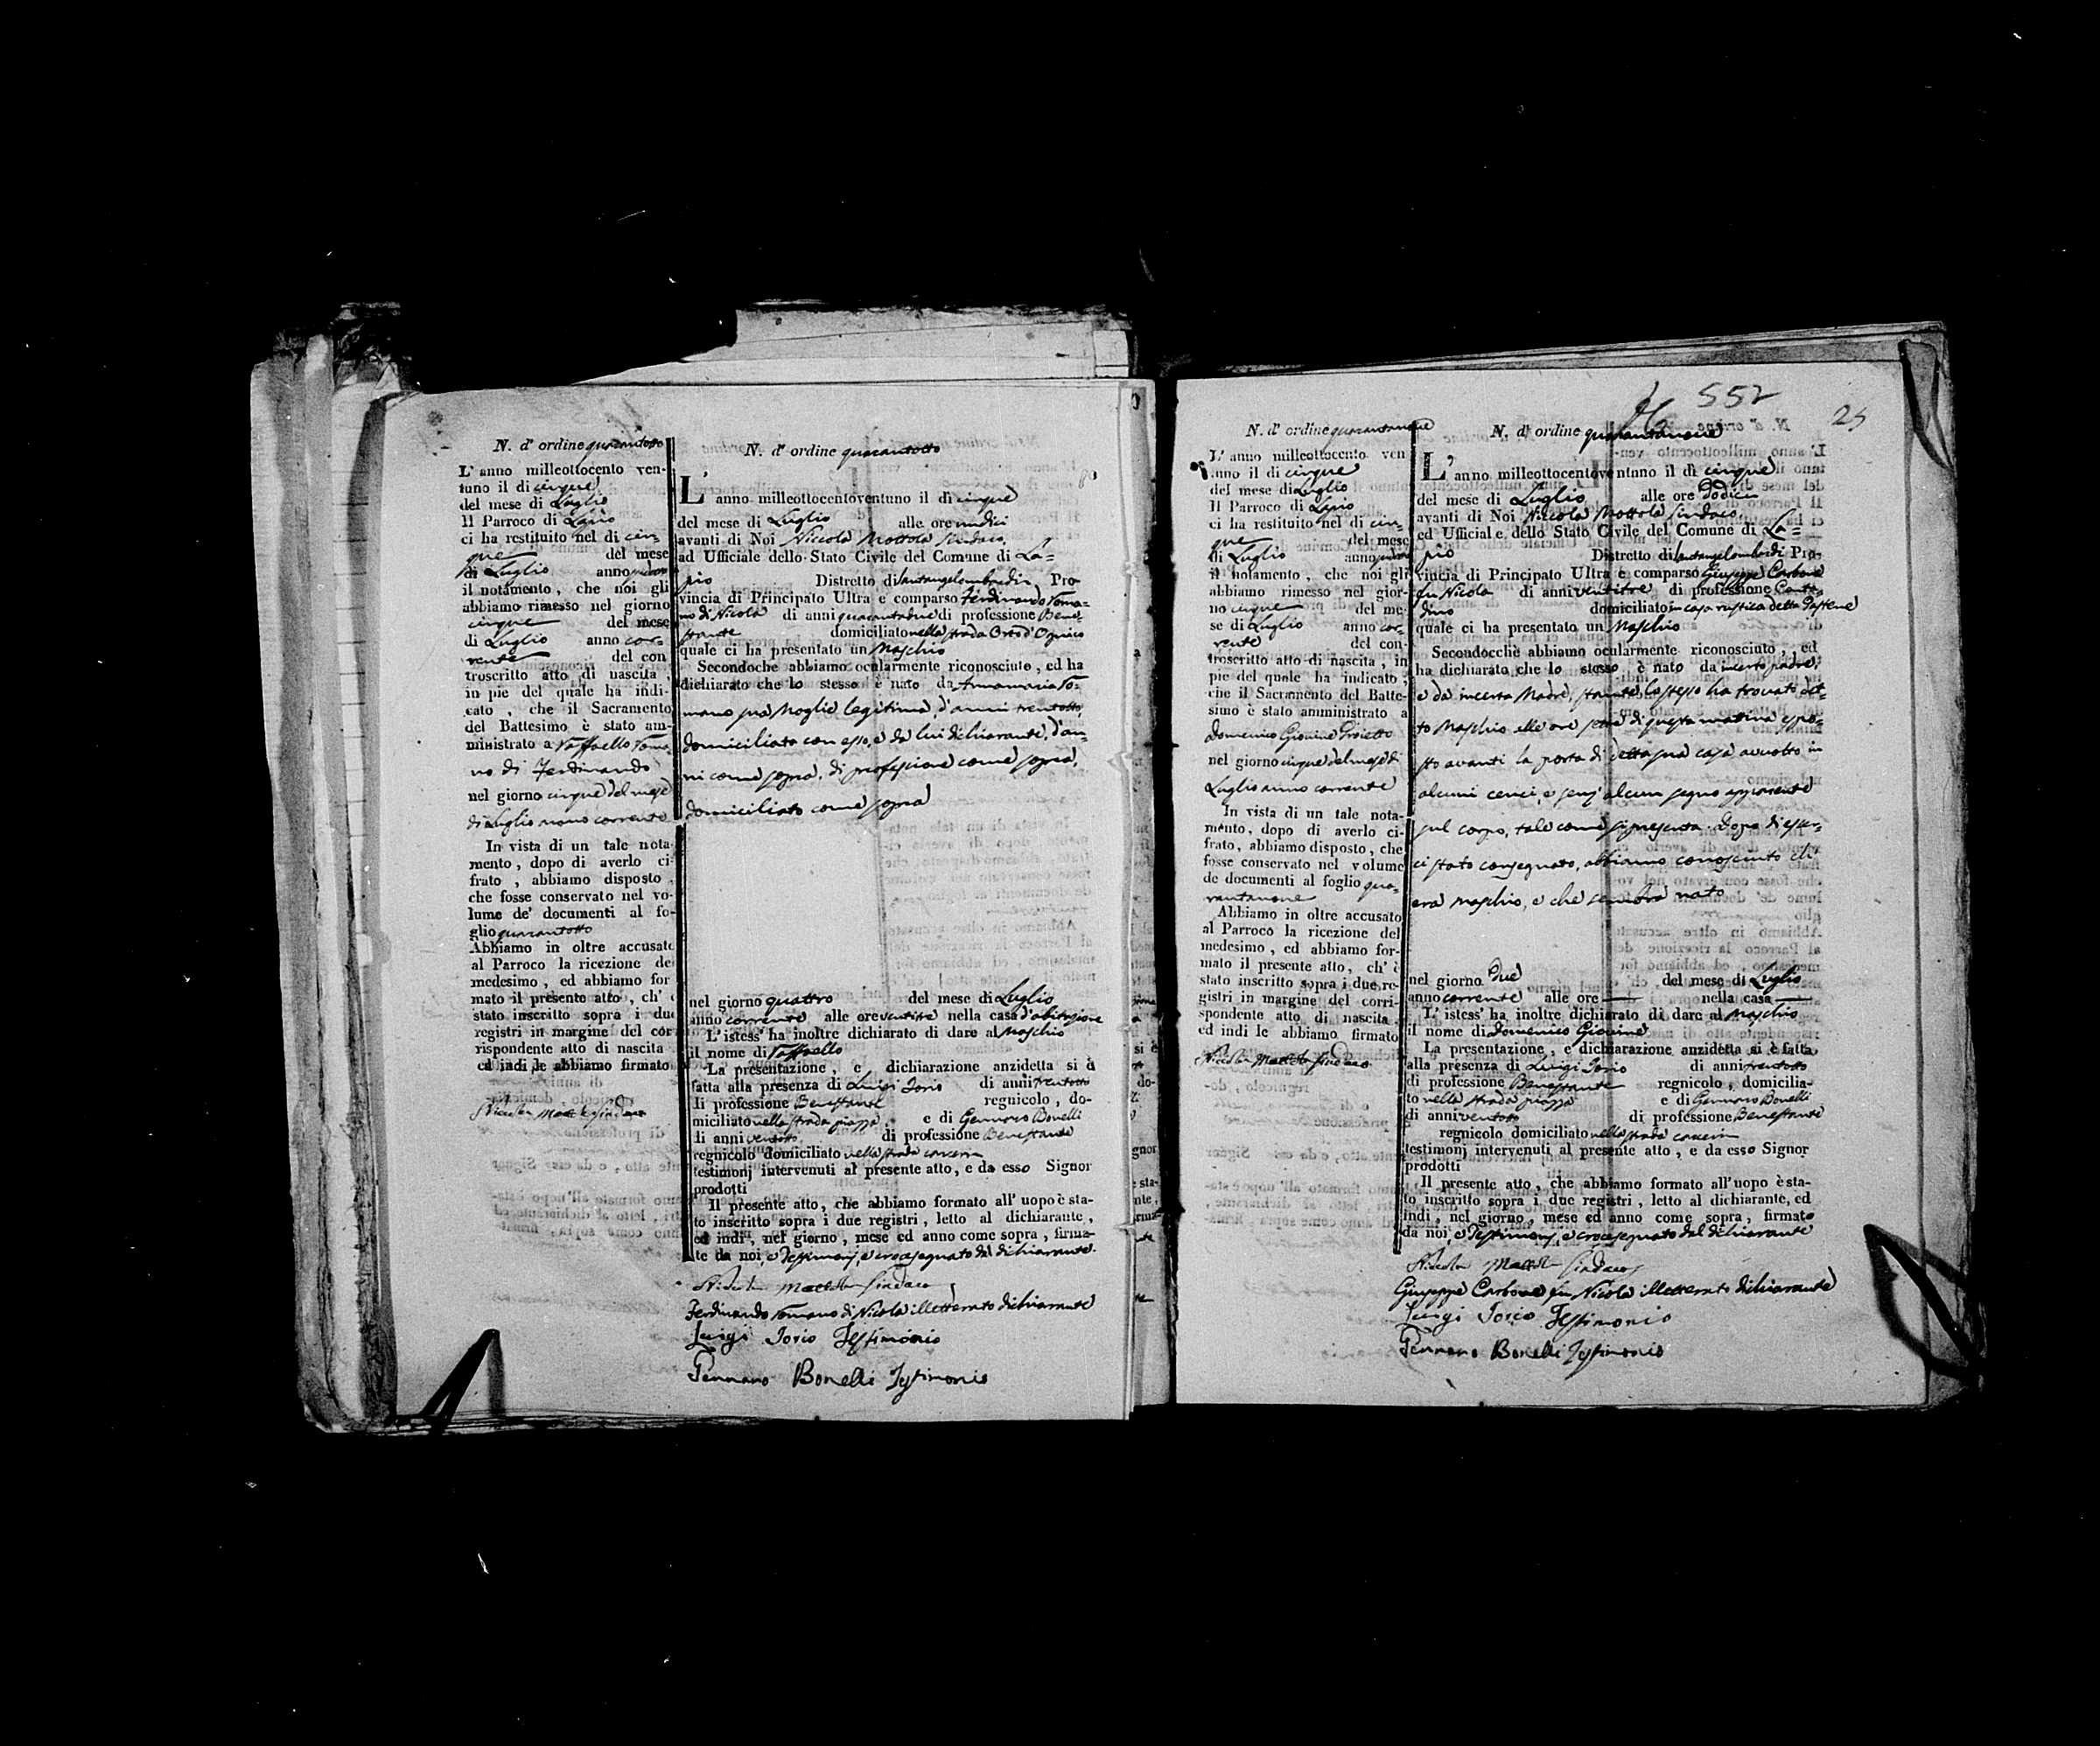 N. d' ordine quarantotto
L' anno milleottocento ven-
tuno il di cinque
del mese di Luglio
Il Parroco di Lapio
ci ha restituito nel di cin-
que del mese
di Luglio anno
il notamento, che noi gli
abbiamo rimesso nel giorno
cinque del mese
di Luglio anno cor-
rente del con
troscritto atto di nascita,
in piè del quale ha indi-
cato, che il Sacramento
del Battesimo è stato am-
ministrato a Raffaello Roma-
no di Ferdinando
nel giorno cinque del mese
di Luglio anno corrente
In vista di un tale nota-
mento, dopo di averlo ci-
frato, abbiamo disposto,
che fosse conservato nel vo-
lume de' documenti al fo-
glio quarantotto
Abbiamo in oltre accusato
al Parroco la ricezione del
medesimo, ed abbiamo for
mato il presente atto, ch' è
stato inscritto sopra i due
registri in margine del cor
rispondente atto di nascita
ed indi le abbiamo firmato
Niccola Mottola Sindaco
N. d' ordine quarantotto
L' anno milleottocentoventuno il dì cinque
del mese di Luglio alle ore undici
avanti di Noi Niccola Mottola Sindaco,
ad Uffiziale dello Stato Civile del Comune di La-
pio Distretto di Santangelombardi Pro
vincia di Principato Ultra è comparso Ferdinando Roma-
no di Nicola di anni quarantadue di professione Bene-
stante domiciliato nella strada Orto d'Ognico
quale ci ha presentato un Maschio
Secondoche abbiamo ocularmente riconosciuto, ed ha
dichiarato che lo stesso è nato da Annamaria Ro-
mano sua Moglie legitima, d'anni trentotto,
domiciliata con esso, e da lui dichiarante, d'an-
ni come sopra, di professione come sopra,
domiciliato come sopra
nel giorno quattro del mese di Luglio
anno corrente alle ore ventitre nella casa d'abitazione
L' istess' ha inoltre dichiarato di dare al Maschio
il nome di Raffaello
La presentazione, e dichiarazione anzidetta si è
fatta alla presenza di Luigi Iorio di anni trentotto
di professione Benestante regnicolo, do-
miciliato nella strada piazza, e di Gennaro Bonelli
di anni ventotto di professione Benestante
regnicolo domiciliato nella strada
testimonj intervenuti al presente atto, e da esso Signor
prodotti
Il presente atto, che abbiamo formato all' uopo è sta-
to inscritto sopra i due registri, letto al dichiarante,
ed indi, nel giorno, mese ed anno come sopra, firma-
te da noi, e Testimonj, e crocesegnato dal dichiarante.
Niccola Mottola Sindaco
Ferdinando Romano di Nicola illetterato dichiarante
Luigi Iorio Testimonio
Gennaro Bonelli Testimonio
552
25
N. d' ordine quarantanove
L' anno milleottocento ven
tuno il di cinque
del mese di Luglio
Il Parroco di Lapio
ci ha restituito nel di cin-
que del mese
di Luglio anno
il notamento, che noi gli
abbiamo rimesso nel gior-
no cinque del me-
se di Luglio anno cor-
rente del con-
troscritto atto di nascita, in
piè del quale ha indicato,
che il Sacramento del Batte-
simo è stato amministrato a
Domenico Giovine Proietto
nel giorno cinque del mese di
Luglio anno corrente
In vista di un tale nota-
mento, dopo di averlo ci-
frato, abbiamo disposto, che
fosse conservato nel volume
de documenti al foglio qua-
rantanove
Abbiamo in oltre accusato
al Parroco la ricezione del
medesimo, ed abbiamo for-
mato il presente atto, ch' è
stato inscritto sopra i due re-
gistri in margine del corri-
spondente atto di nascita,
ed indi le abbiamo firmato
Niccola Mottola Sindaco
N. d' ordine quarantanove
L' anno milleottocentoventuno il dì cinque
del mese di Luglio alle ore dodici
avanti di Noi Niccola Mottola Sindaco,
ed Uffiziale dello Stato Civile del Comune di La-
pio Distretto di Santangelombardi Pro-
vincia di Principato Ultra è comparso Giuseppe Carbone
fu Nicola di anni ventitre di professione Conta-
dino domiciliato in casa rustica detta Pastene
quale ci ha presentato un Maschio
Secondocchè abbiamo ocularmente riconosciuto, ed
ha dichiarato che lo stesso è nato da incerto padre,
e da incerta Madre, stante lo stesso ha trovato det-
to Maschio alle ore sette di questa matina espo-
sto avanti la porta di detta sua casa avvolto in
alcuni cenci, e senz' alcun segno apparente
sul corpo, tale come si presenta. Dopo di esser-
ci stato consegnato, abbiamo conosciuto che
era maschio, e che sembra nato
nel giorno due del mese di Luglio
anno corrente alle ore — nella casa —
L' istess' ha inoltre dichiarato di dare al Maschio
il nome di Domenico Giovine
La presentazione, e dichiarazione anzidetta si è fatta
alla presenza di Luigi Iorio di anni trentotto
di professione Benestante regnicolo, domicilia-
to nella strada piazza e di Gennaro Bonelli
di anni ventotto di professione Benestante
regnicolo domiciliato nella strada
testimonj intervenuti al presente atto, e da esso Signor
prodotti
Il presente atto, che abbiamo formato all' uopo è sta-
to inscritto sopra i due registri, letto al dichiarante, ed
indi, nel giorno, mese ed anno come sopra, firmato
da noi, e Testimonj, e crocesegnato dal dichiarante
Niccola Mottola Sindaco
Giuseppe Carbone fu Nicola illetterato dichiarante
Luigi Iorio Testimonio
Gennaro Bonelli Testimonio